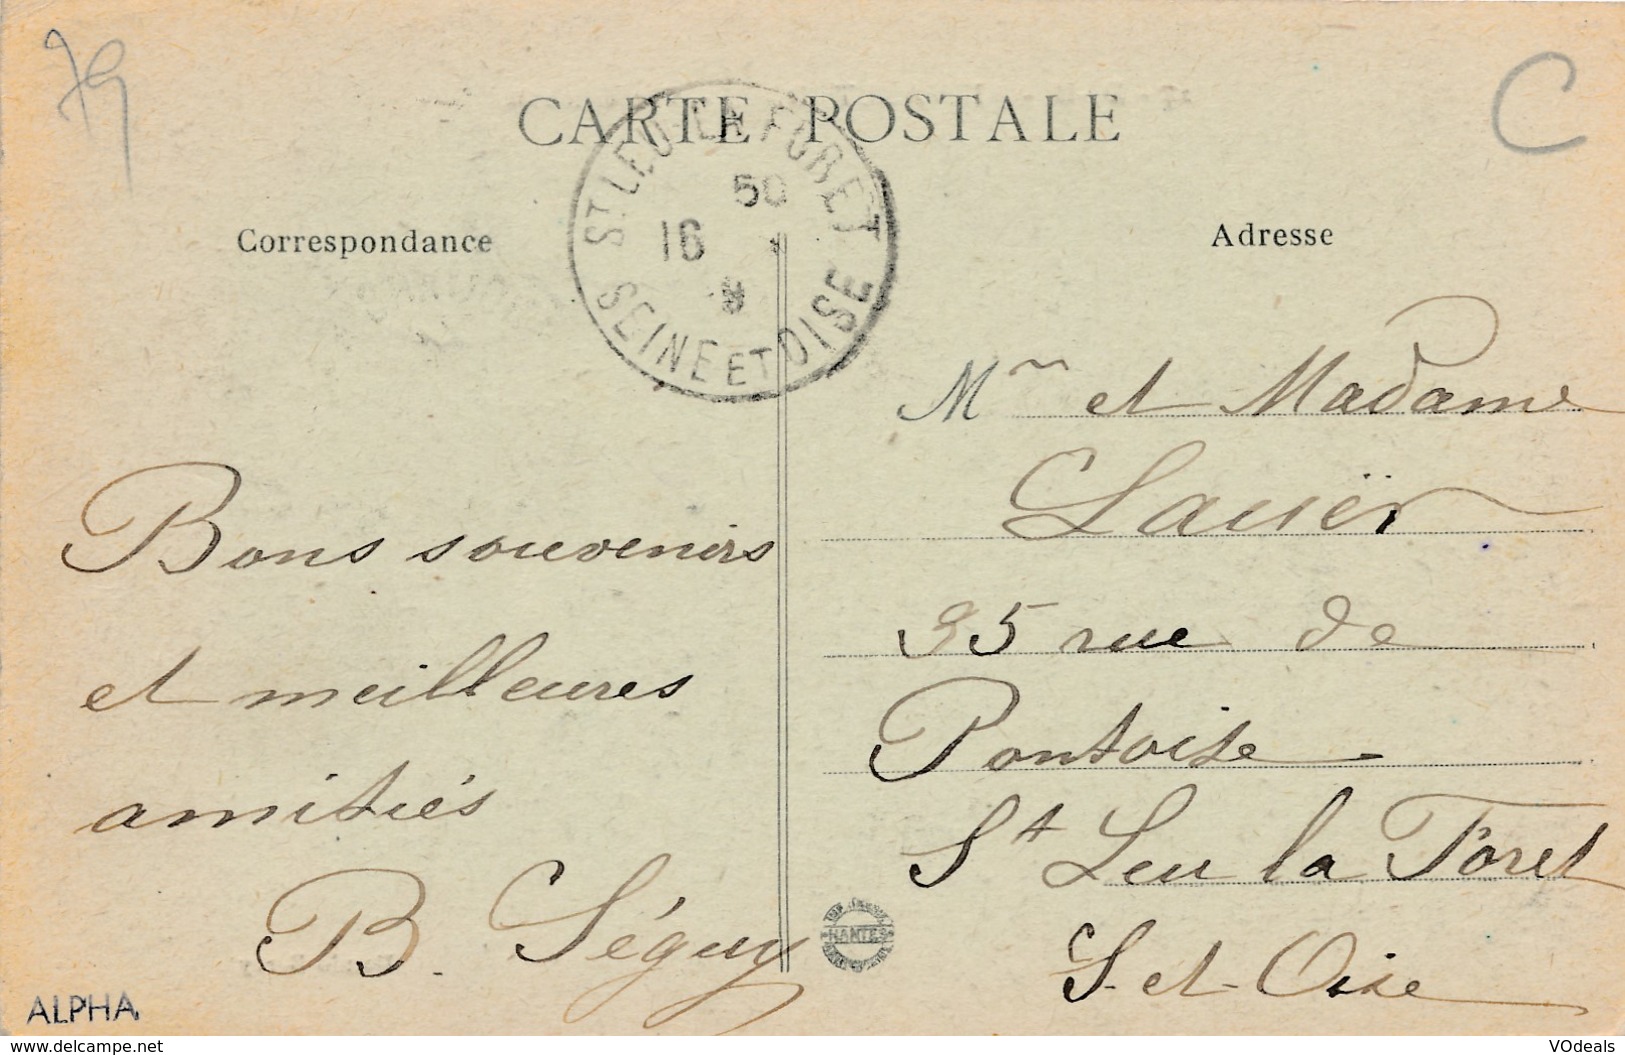 79
C
CARTE POSTALE
ST LEU-LA FORET
50
16
8
SEINE ET OISE
Correspondance
Adresse
Mr et Madame
Lauër
95 rue de
Pontoise
St Leu la Foret
S-et-Oise
Bons souvenirs
et meilleures
amitiés
B. Séguy
NANTES
ALPHA
www.delcampe.net
VOdeals